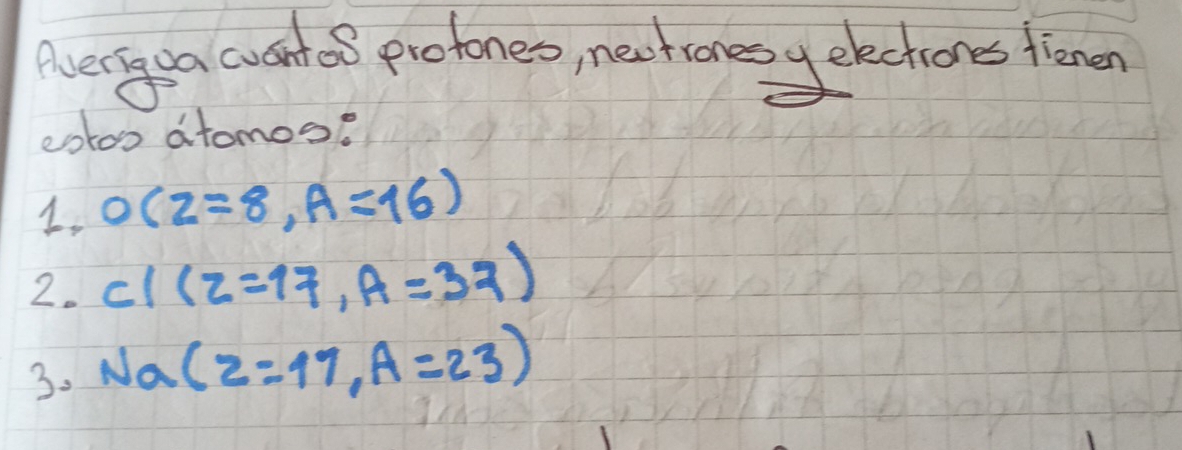 Averigua cuántos protones, neutrones y electrones tienen
estos átomos:
1. O(Z=8, A=16)
2. Cl (Z=17, A=37)
3. Na(Z=11, A=23)